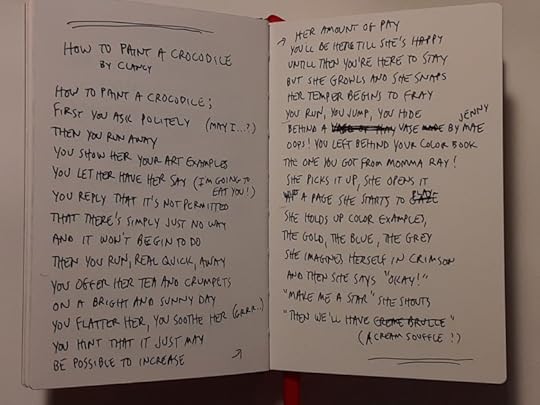 HOW TO PAINT A CROCODILE
BY CLANCY
HOW TO PAINT A CROCODILE;
FIRST YOU ASK POLITELY (MAY I...?)
THEN YOU RUN AWAY
YOU SHOW HER YOUR ART EXAMPLES
YOU LET HER HAVE HER SAY (I'M GOING TO
EAT YOU!)
YOU REPLY THAT IT'S NOT PERMITTED
THAT THERE'S SIMPLY JUST NO WAY
AND IT WON'T BEGIN TO DO
THEN YOU RUN, REAL QUICK, AWAY
YOU OFFER HER TEA AND CRUMPETS
ON A BRIGHT AND SUNNY DAY
YOU FLATTER HER, YOU SOOTHE HER (GRRR..)
YOU HINT THAT IT JUST MAY
BE POSSIBLE TO INCREASE
HER AMOUNT OF PAY
YOU'LL BE HERE TILL SHE'S HAPPY
UNTILL THEN YOU'RE HERE TO STAY
BUT SHE GROWLS AND SHE SNAPS
HER TEMPER BEGINS TO FRAY
YOU RUN, YOU JUMP, YOU HIDE
BEHIND A VASE MADE BY JENNY MAE
OOPS! YOU LEFT BEHIND YOUR COLOR BOOK
THE ONE YOU GOT FROM MOMMA RAY!
SHE PICKS IT UP, SHE OPENS IT
A PAGE SHE STARTS TO PLAY
SHE HOLDS UP COLOR EXAMPLES,
THE GOLD, THE BLUE, THE GREY
SHE IMAGINES HERSELF IN CRIMSON
AND THEN SHE SAYS "OKAY!"
"MAKE ME A STAR" SHE SHOUTS
"THEN WE'LL HAVE CREME BRULLE"
(A CREAM SOUFFLE!)